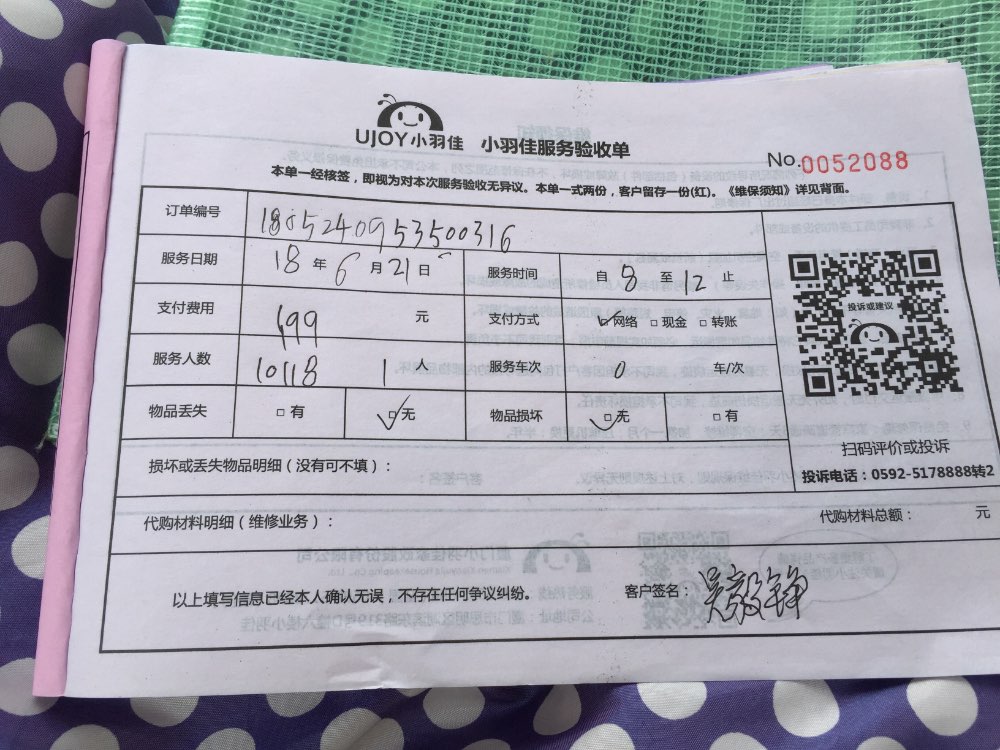 UJOY小羽佳 小羽佳服务验收单
No.0052088
本单一经核签，即视为对本次服务验收无异议。本单一式两份，客户留存一份(红)。《维保须知》详见背面。
订单编号 1805240953500316
服务日期 18 年 6 月 21 日 服务时间 自 8 至 12 止
支付费用 199 元 支付方式 网络 现金 转账
服务人数 10118 1 人 服务车次 0 车/次
物品丢失 有 无 物品损坏 无 有
投诉或建议
扫码评价或投诉
投诉电话：0592-5178888转2
损坏或丢失物品明细（没有可不填）：
代购材料明细（维修业务）： 代购材料总额： 元
以上填写信息已经本人确认无误，不存在任何争议纠纷。 客户签名：吴毅铮